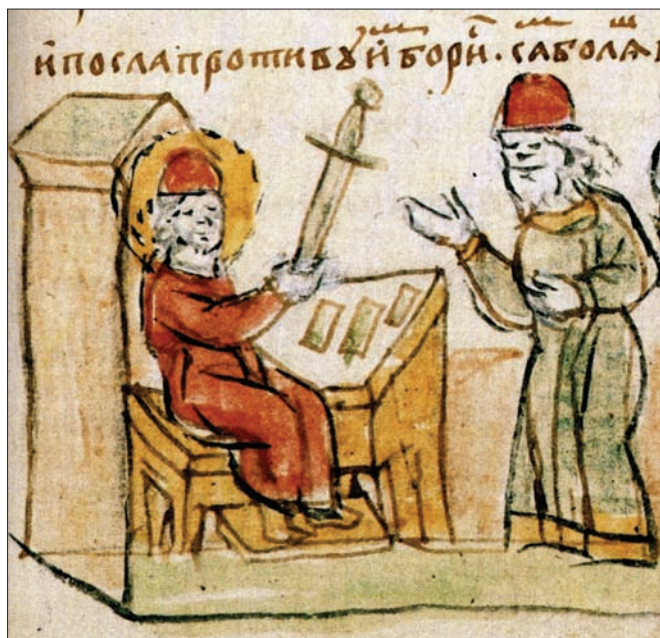 и посла противу иⷨ бориⷭ. саⷨ болѧⷲ